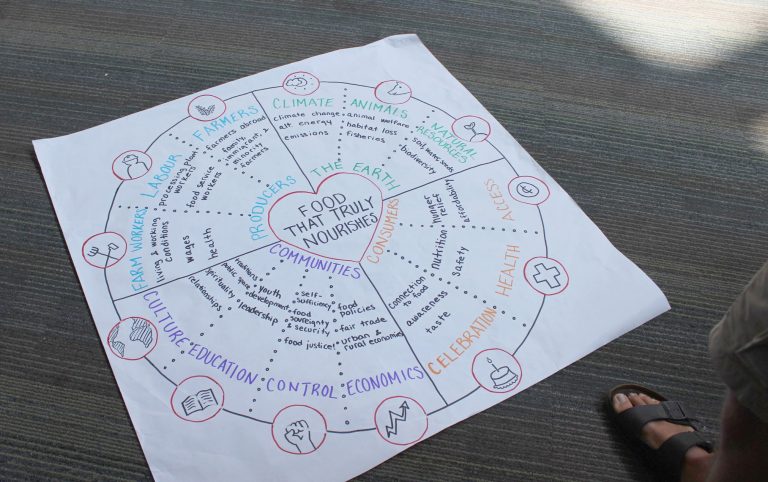 FOOD
THAT TRULY
NOURISHES
THE EARTH
CLIMATE
climate change
alt. energy
emissions
ANIMALS
animal welfare
habitat loss
fisheries
NATURAL
RESOURCES
soil, water, seeds
biodiversity
CONSUMERS
ACCESS
affordability
hunger
relief
HEALTH
nutrition
safety
CELEBRATION
connection
to food
awareness
taste
COMMUNITIES
ECONOMICS
food
policies
fair trade
urban &
rural economies
CONTROL
self-
sufficiency
food
sovereignty
& security
food justice!
EDUCATION
youth
development
leadership
CULTURE
traditions
public space
spirituality
relationships
PRODUCERS
FARM WORKERS
living & working
conditions
wages
health
LABOUR
processing plant
workers
food service
workers
FARMERS
farmers abroad
family,
immigrant, &
minority
farmers